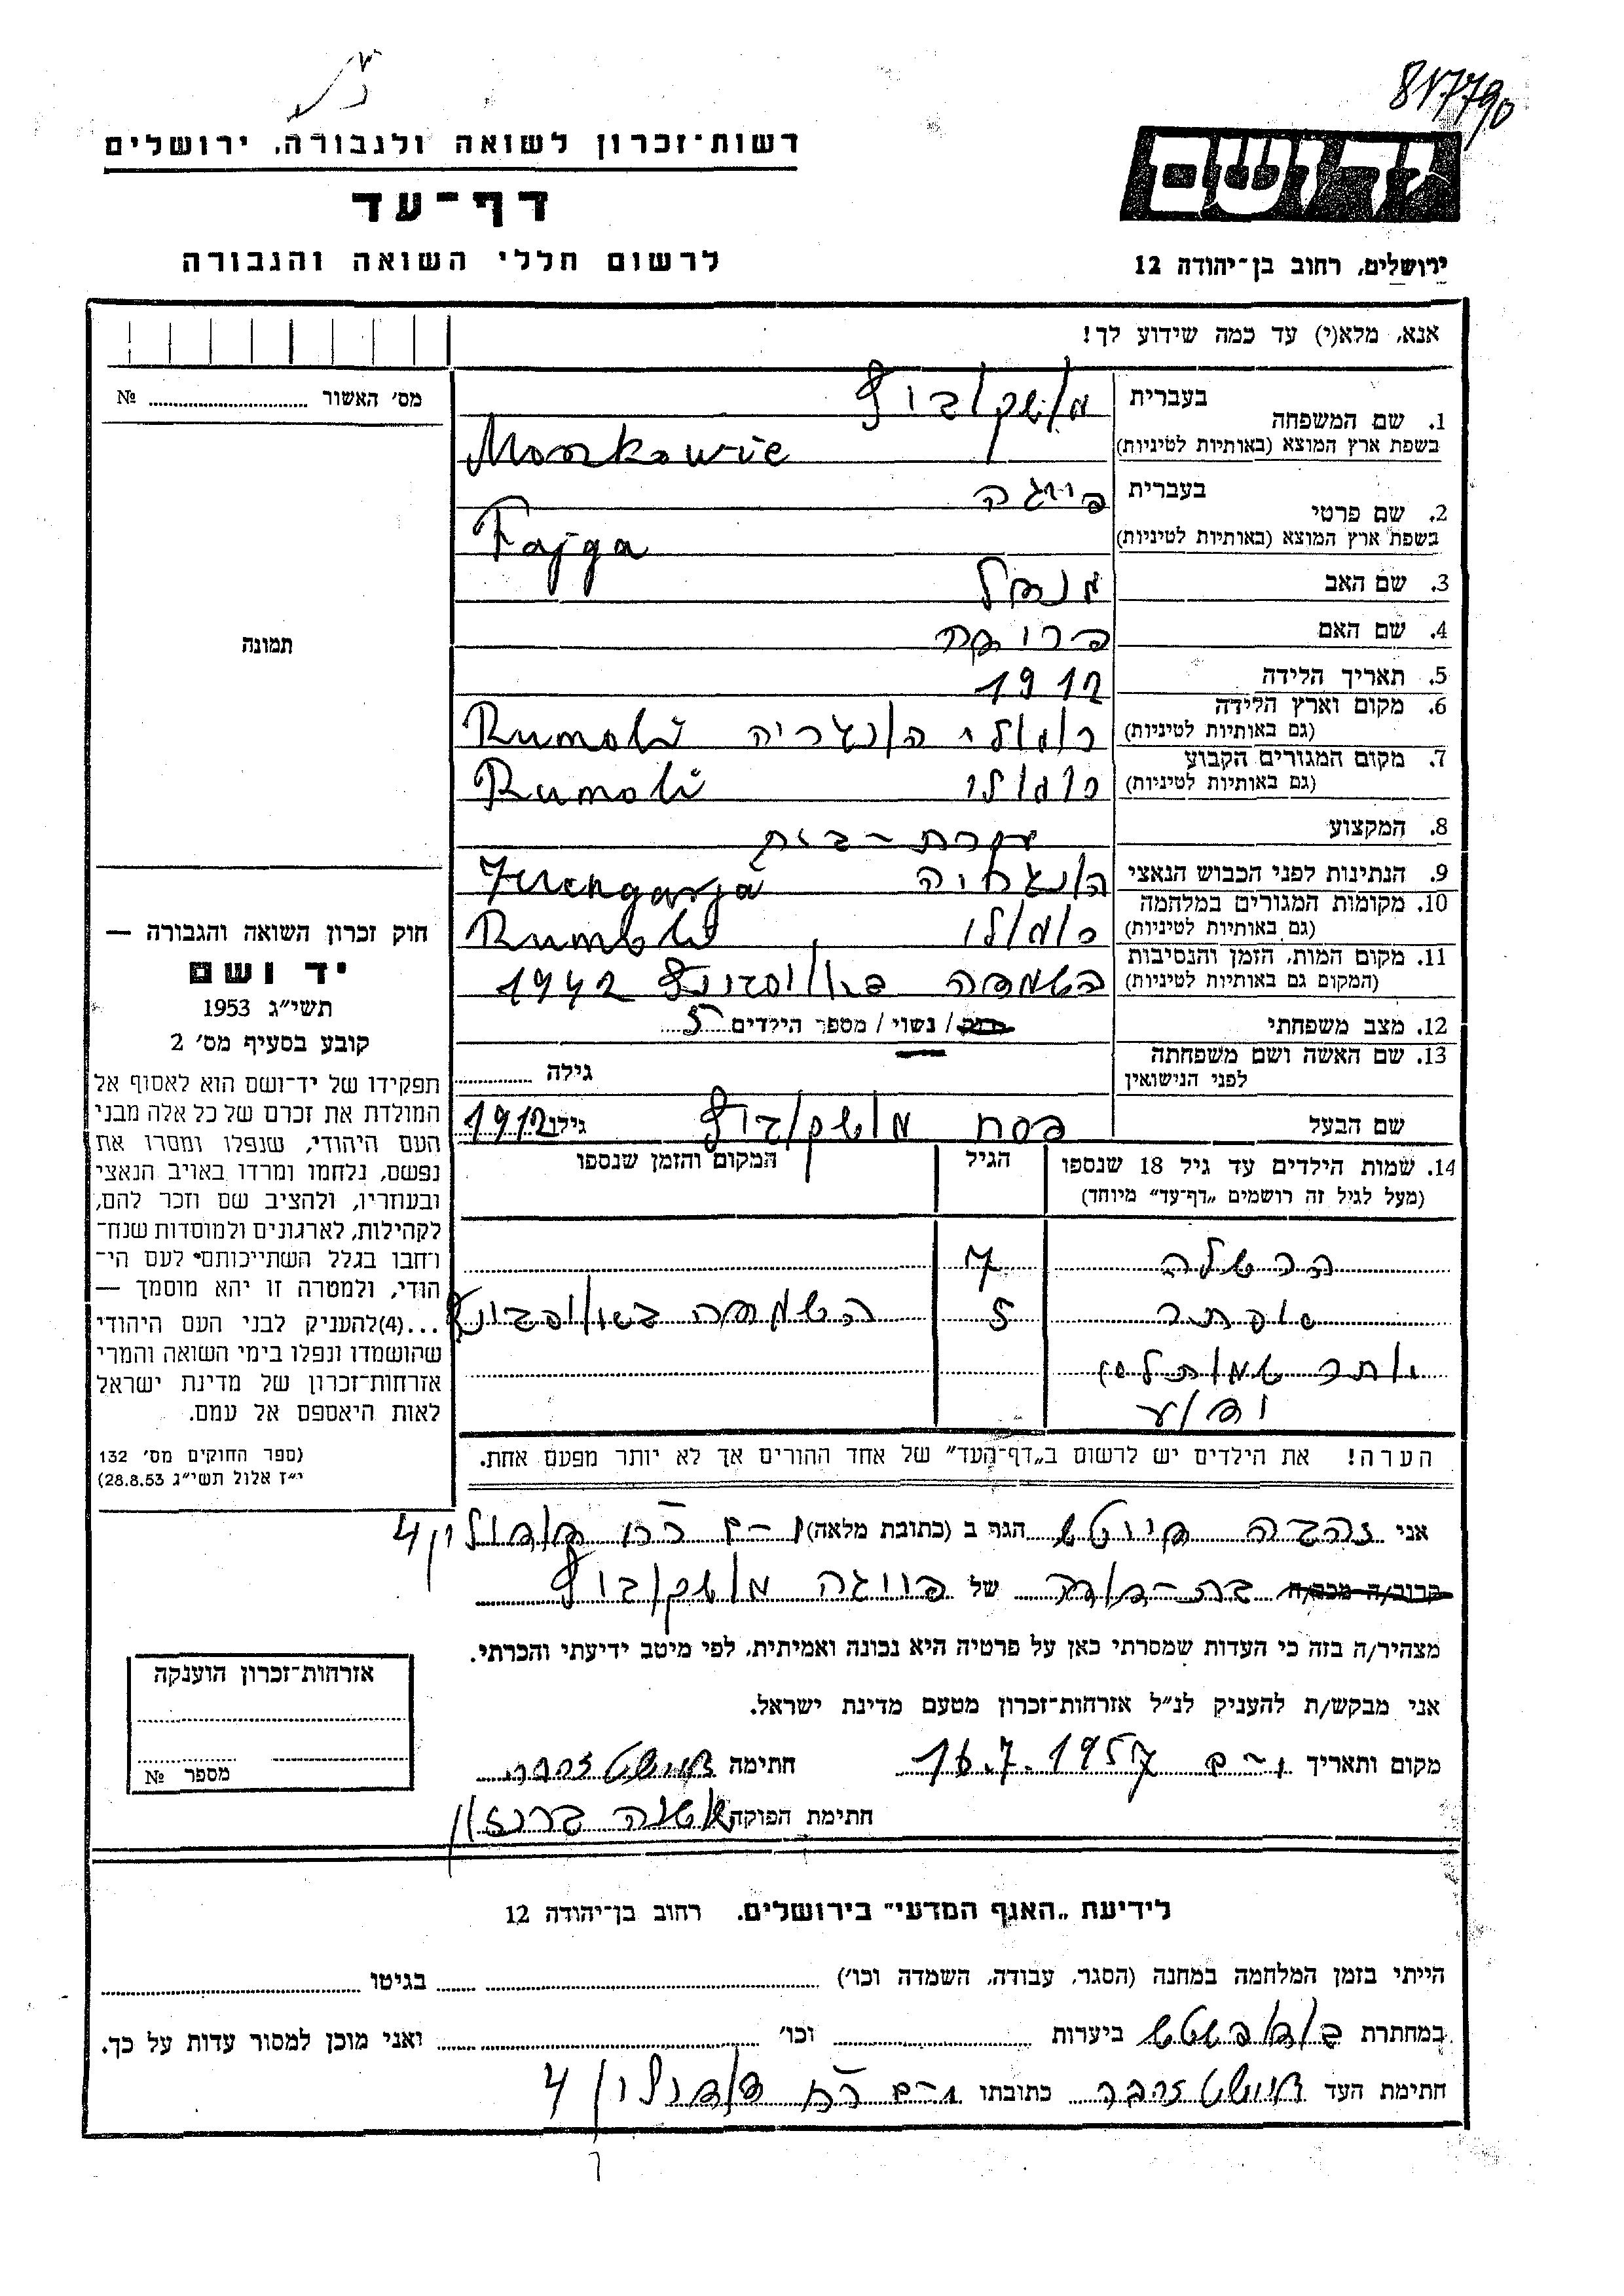 817790
רשות־זכרון לשואה ולגבורה, ירושלים
דף־עד
לרשום חללי השואה והגבורה
ידושם
ירושלים, רחוב בן־יהודה 12
אנא, מלא(י) עד כמה שידוע לך!
מס׳ האשור № 
1. שם המשפחה
בעברית מושקוביץ
בשפת ארץ המוצא (באותיות לטיניות) Moszkowic
2. שם פרטי
בעברית פייגה
בשפת ארץ המוצא (באותיות לטיניות) Fajga
3. שם האב מנדל
4. שם האם
5. תאריך הלידה 1912
6. מקום וארץ הלידה
(גם באותיות לטיניות) הונגריה
7. מקום המגורים הקבוע
(גם באותיות לטיניות)
8. המקצוע עקרת־בית
9. הנתינות לפני הכבוש הנאצי
10. מקומות המגורים במלחמה
(גם באותיות לטיניות)
11. מקום המות, הזמן והנסיבות
(המקום גם באותיות לטיניות) הושמדה באושויץ 1942
12. מצב משפחתי רוק / נשוי / מספר הילדים 5
13. שם האשה ושם משפחתה
לפני הנישואין גילה
שם הבעל פסח מושקוביץ גילו 1912
14. שמות הילדים עד גיל 18 שנספו
(מעל לגיל זה רושמים „דף־עד״ מיוחד)
הגיל
המקום והזמן שנספו
הרשלה 7
5
הערה! את הילדים יש לרשום ב„דף־העד״ של אחד ההורים אך לא יותר מפעם אחת.
תמונה
חוק זכרון השואה והגבורה —
יד ושם
תשי״ג 1953
קובע בסעיף מס׳ 2
תפקידו של יד־ושם הוא לאסוף אל
המולדת את זכרם של כל אלה מבני
העם היהודי, שנפלו ומסרו את
נפשם, נלחמו ומרדו באויב הנאצי
ובעוזריו, ולהציב שם וזכר להם,
לקהילות, לארגונים ולמוסדות שנח־
רחבו בגלל השתייכותם לעם הי־
הודי, ולמטרה זו יהא מוסמך —
...(4)להעניק לבני העם היהודי
שהושמדו ונפלו בימי השואה והמרי
אזרחות־זכרון של מדינת ישראל
לאות היאספם אל עמם.
(ספר החוקים מס׳ 132
י״ז אלול תשי״ג 28.8.53)
אני זהבה הגר ב (כתובת מלאה) י-ם 4
קרוב/ה מכר/ה בת-דודה של פייגה מושקוביץ
מצהיר/ה בזה כי העדות שמסרתי כאן על פרטיה היא נכונה ואמיתית, לפי מיטב ידיעתי והכרתי.
אני מבקש/ת להעניק לנ״ל אזרחות־זכרון מטעם מדינת ישראל.
מקום ותאריך י-ם 16.7.1957 חתימה
חתימת הפוקד
אזרחות־זכרון הוענקה
מספר №
לידיעת „האגף המדעי״ בירושלים, רחוב בן־יהודה 12
הייתי בזמן המלחמה במחנה (הסגר, עבודה, השמדה וכו׳) בגיטו
במחתרת בודפשט ביערות וכו׳ ואני מוכן למסור עדות על כך.
חתימת העד כתובתו י-ם 4